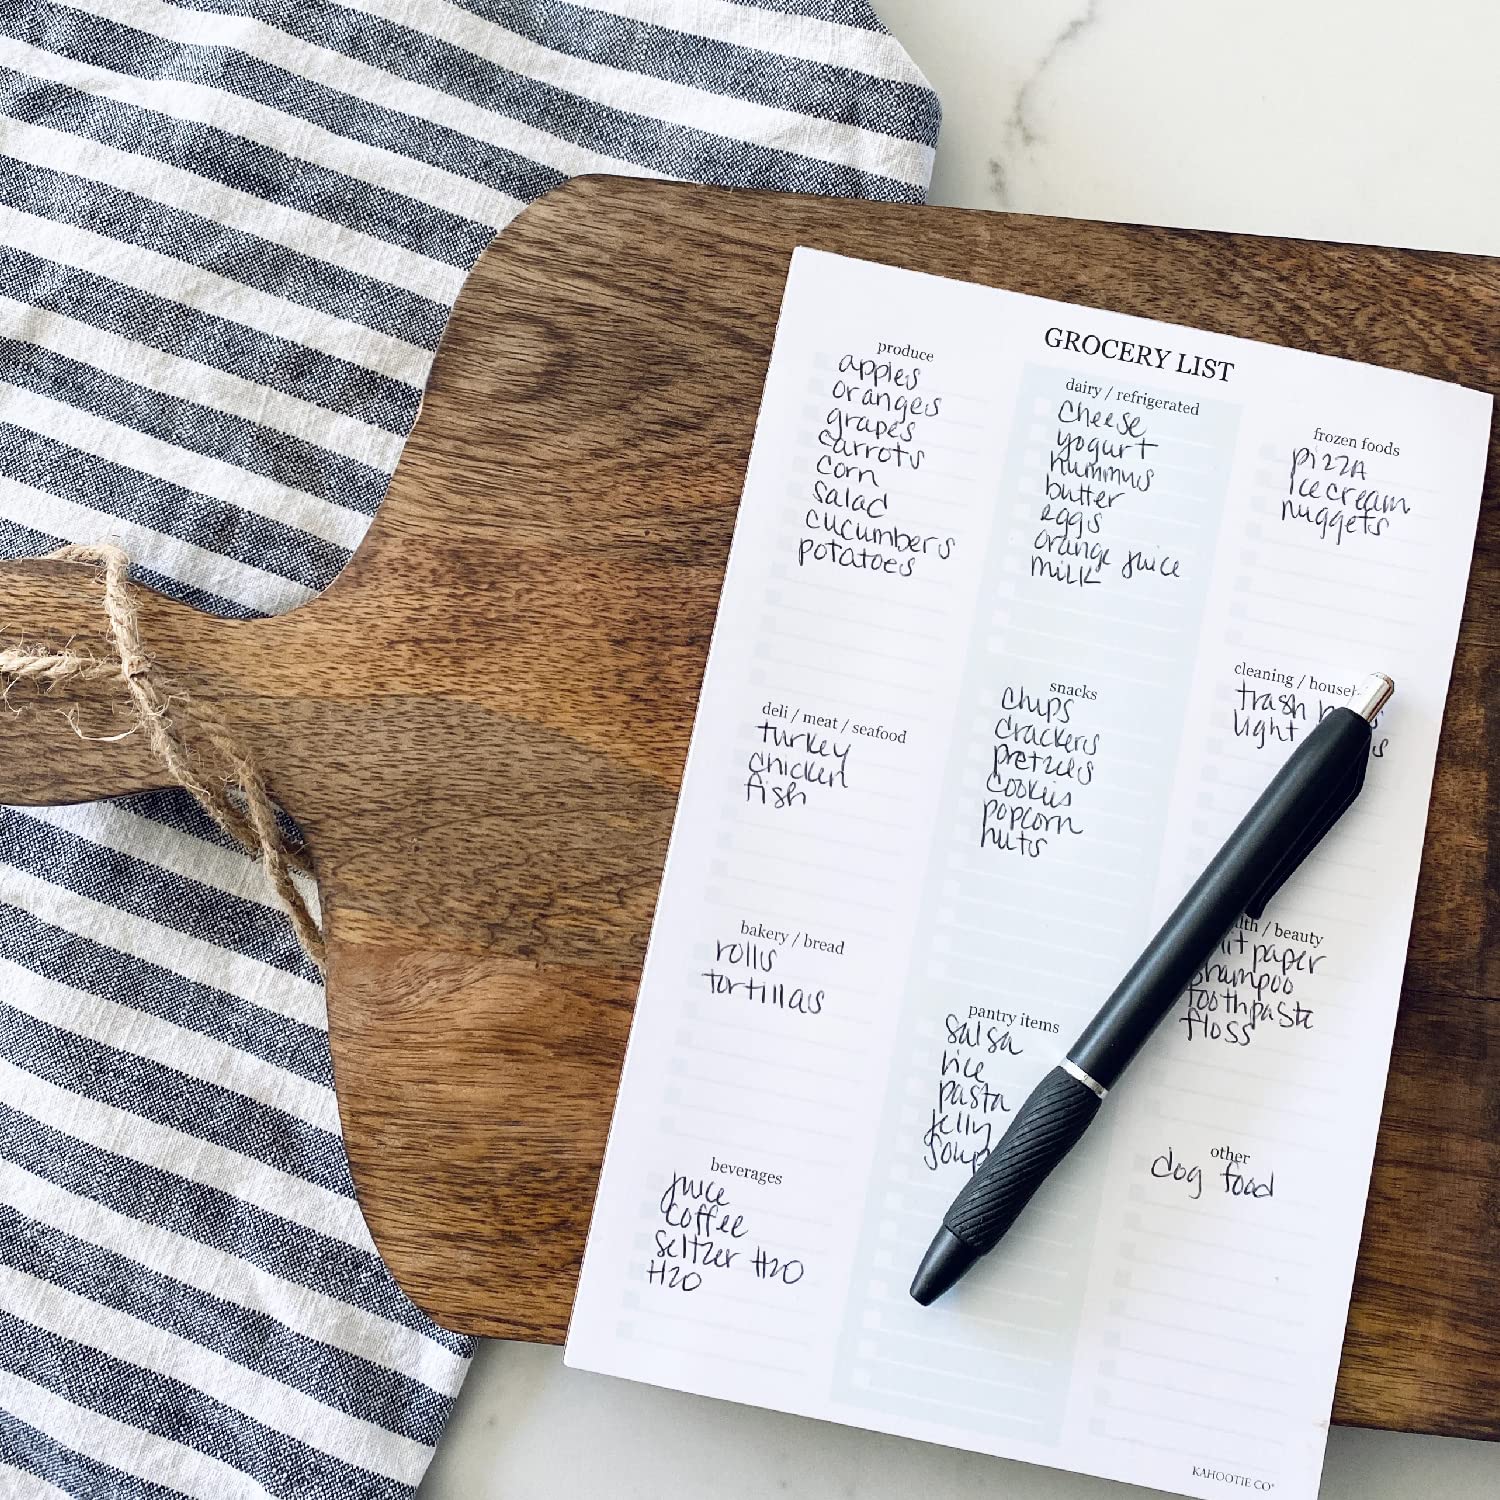 GROCERY LIST
produce
apples
oranges
grapes
carrots
corn
salad
cucumbers
potatoes
deli / meat / seafood
turkey
chicken
fish
bakery / bread
rolls
tortillas
beverages
juice
coffee
seltzer H2O
H2O
dairy / refrigerated
cheese
yogurt
hummus
butter
eggs
orange juice
milk
snacks
chips
crackers
pretzels
cookies
popcorn
nuts
pantry items
salsa
rice
pasta
jelly
soup
frozen foods
pizza
ice cream
nuggets
cleaning /
trash
light
/ beauty
paper
shampoo
toothpaste
floss
other
dog food
KAHOOTIE CO